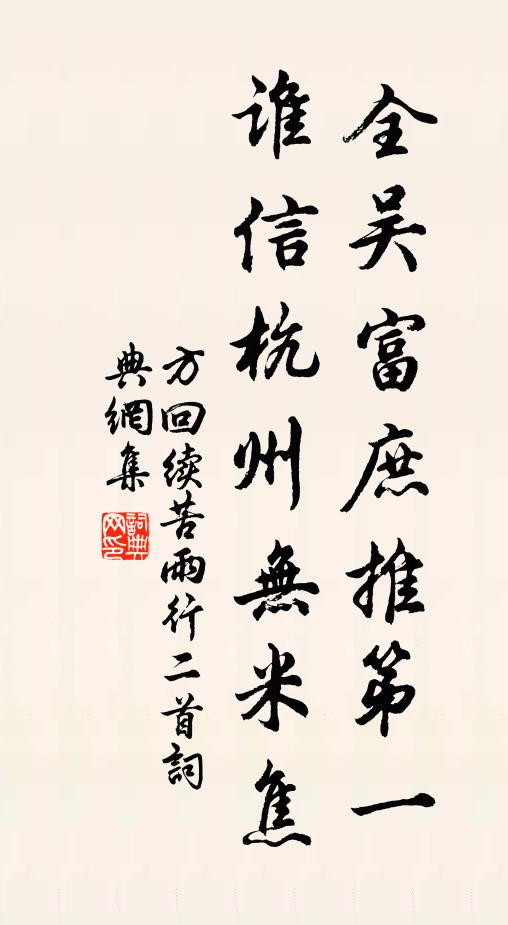 全吴富庶推第一
谁信杭州無米焦
方回续苦雨行二首詞
典網集
詞典
网印